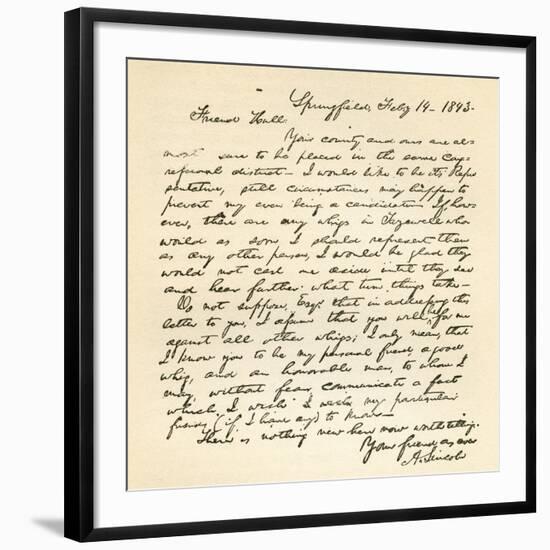 Springfield, Feby 14 - 1843.
Friend Hull:
Your county and ours are al-
most sure to be placed in the same con-
gressional district - I would like to be its Repre
sentative, still circumstances may happen to
prevent my even being a candidate - If, how-
ever, there are any whigs in Tazewell who
would as soon I should represent them
as any other person, I would be glad they
would not cast me aside until they see
and hear farther what turn things take -
Do not suppose, Esqr. that in addressing this
letter to you, I assume that you will be for me
against all other whigs; I only mean, that
I know you to be my personal friend, a good
whig, and an honorable man, to whom I
may, without fear, communicate a fact
which I wish my particular
friends (if I have any) to know -
There is nothing new here now worth telling.
Your friend as ever
A. Lincoln